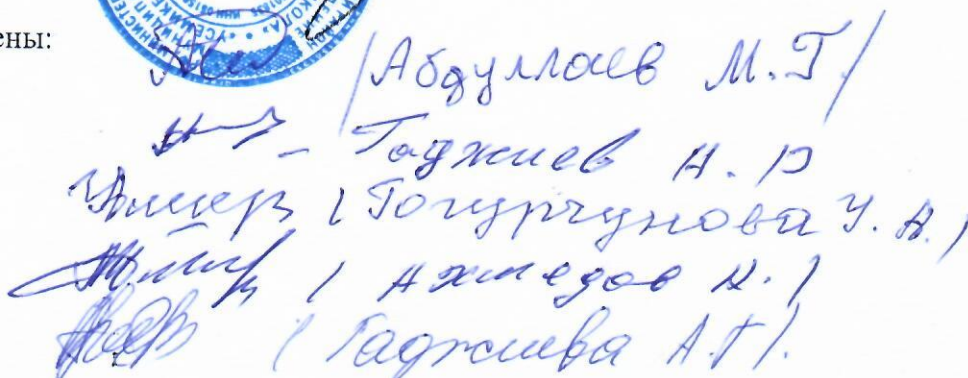 ены:
/Абдуллаев М.Г/
- Гаджиев А. Р
(Гогурчунова У. А.)
(Ахмедов А.)
(Гаджиева А.Г).